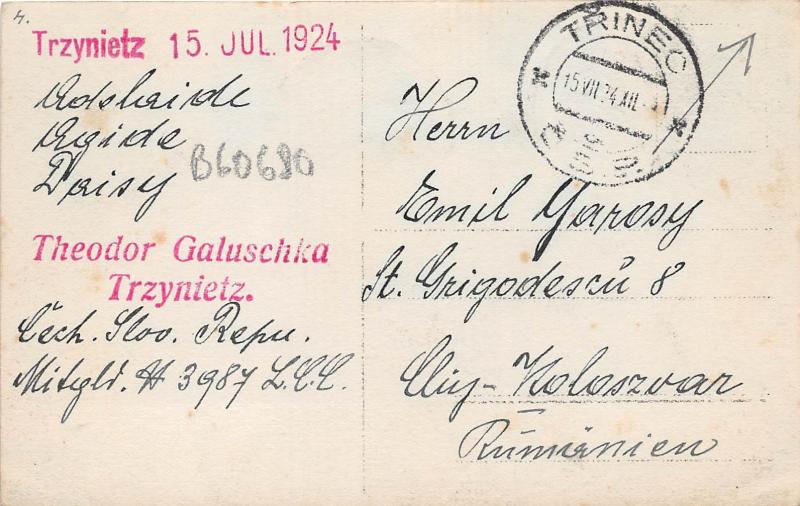 4.
Trzynietz 15. JUL. 1924
Adelaide
Agide
Daisy
B60680
Theodor Galuschka
Trzynietz.
Čech. Slov. Repu.
Mitgld. # 3987 L.C.C.
TŘINEC
15 VII 24 XII
Herrn
Emil Garosy
St. Grigodescŭ 8
Cluj-Koloszvar
Rŭmänien